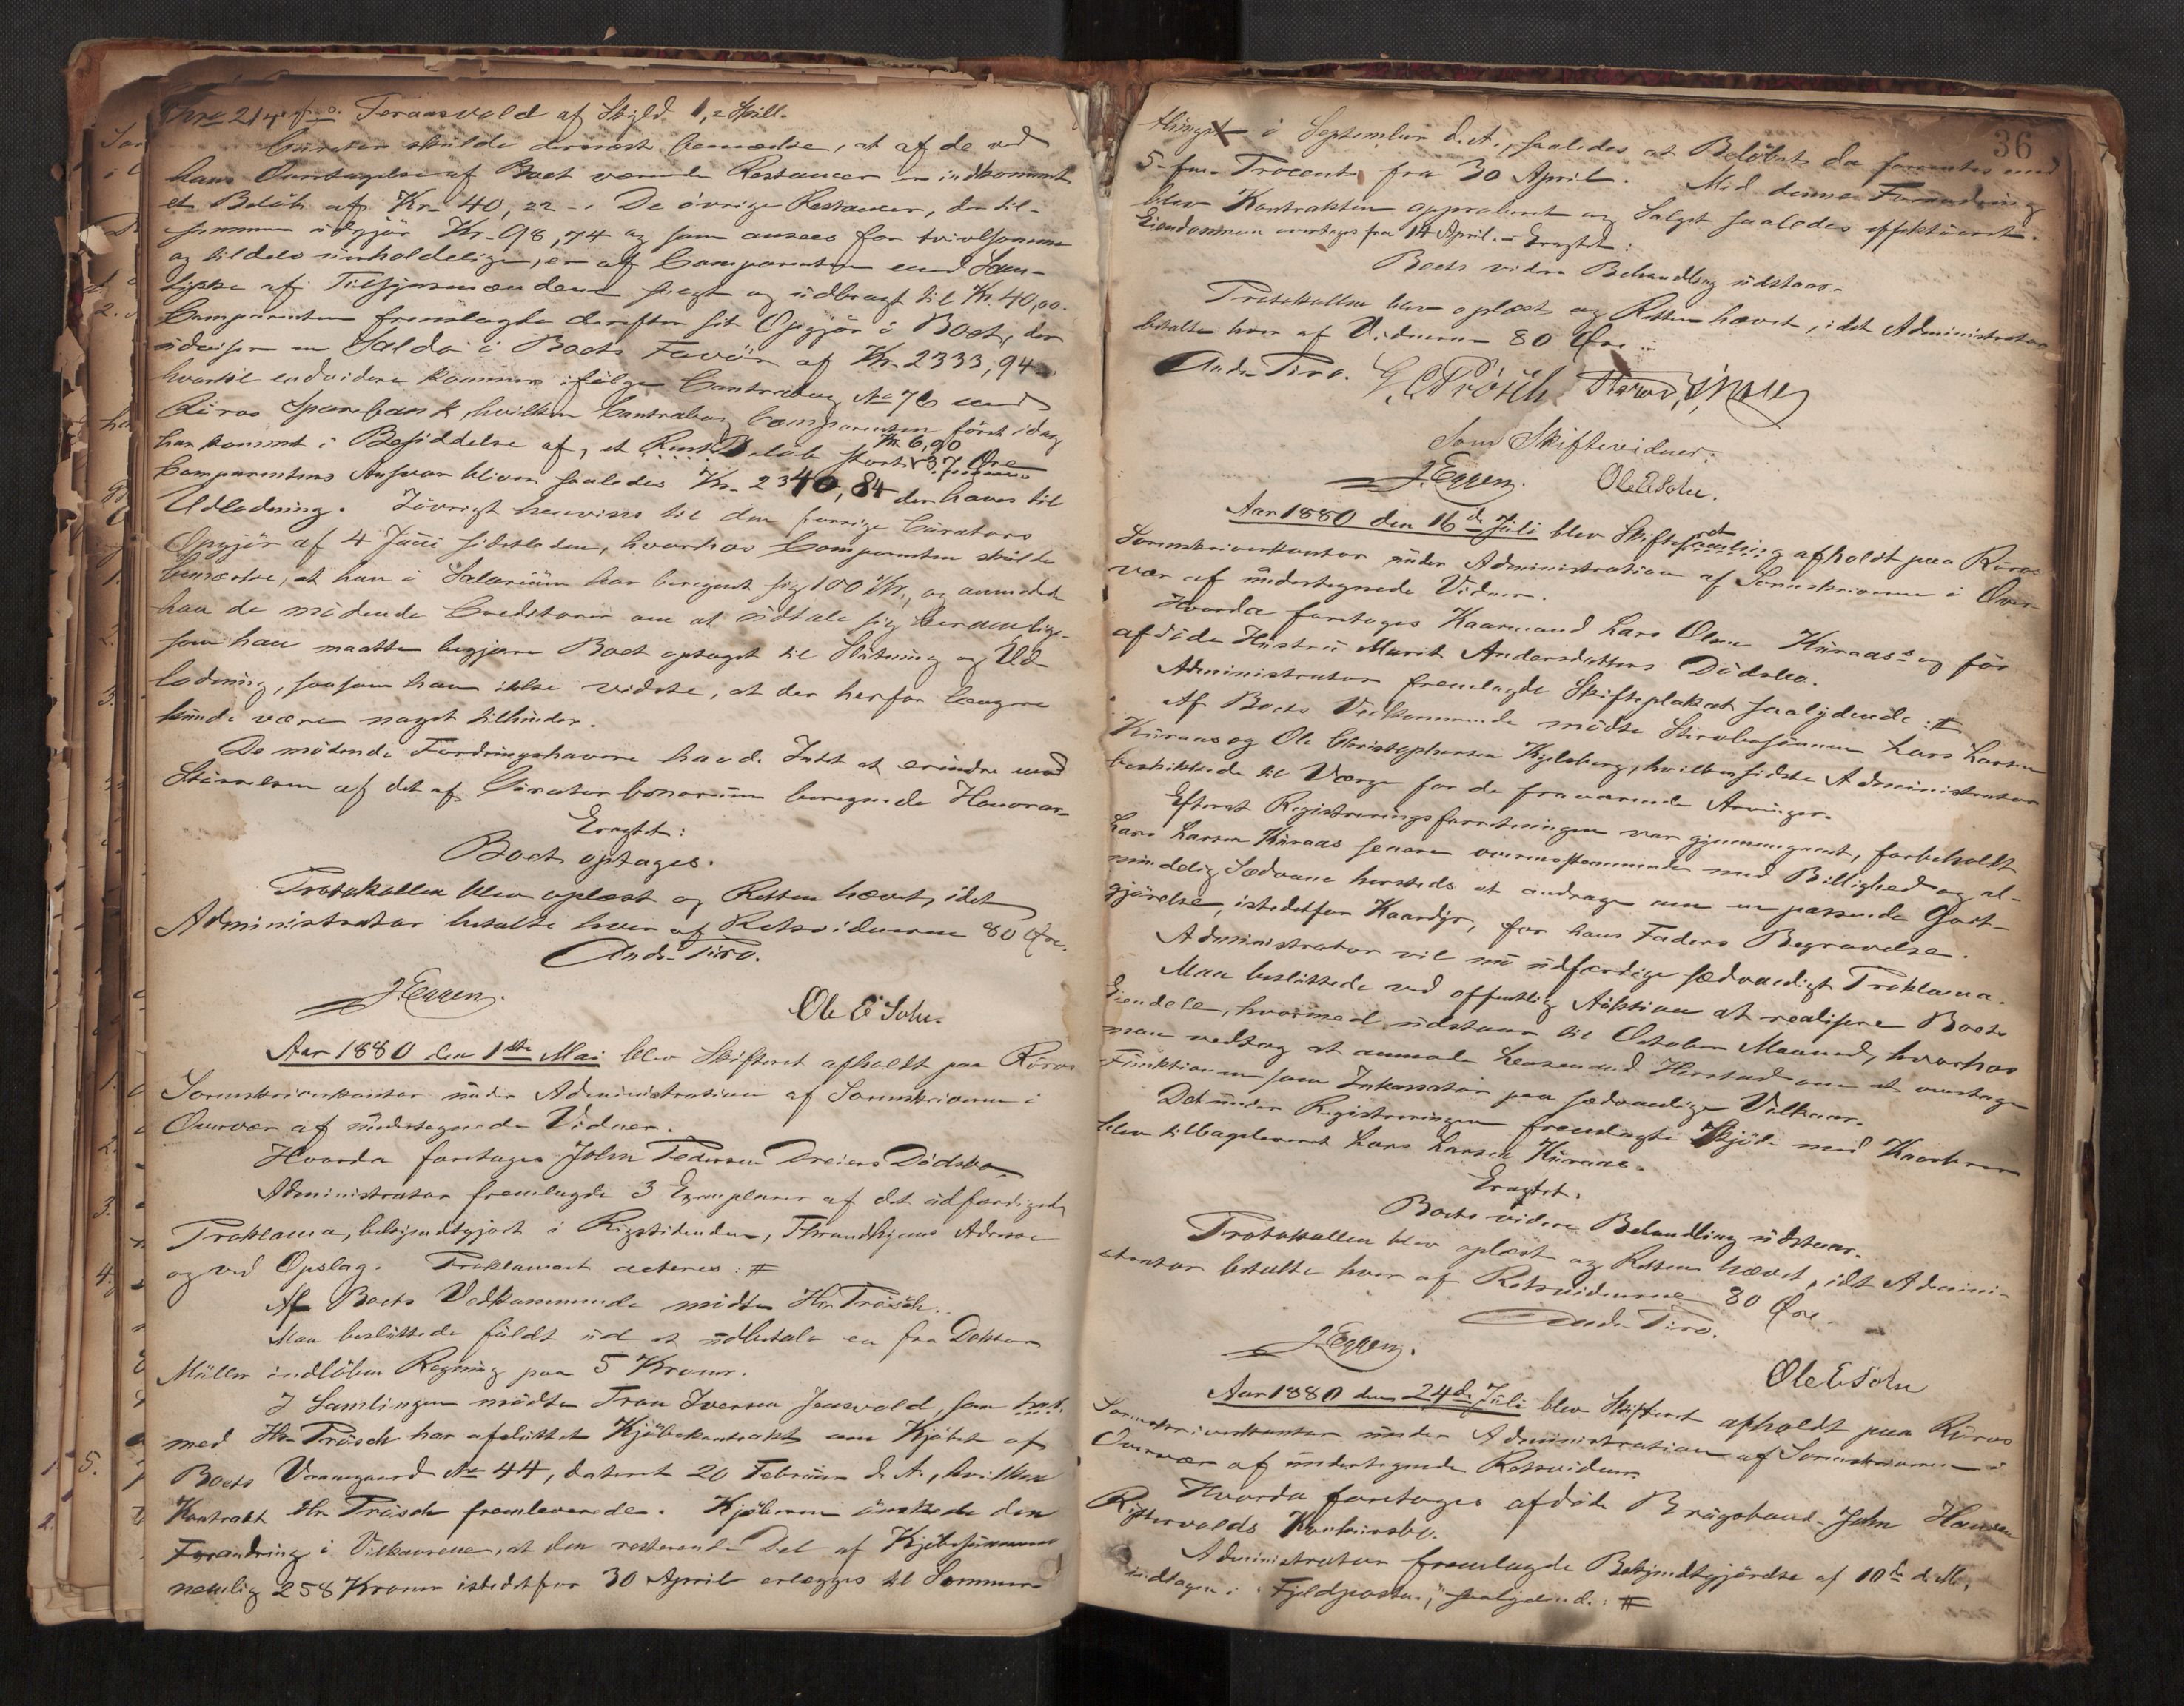 Feraasvold af Skyld 1,2 Skill.
Curator skulde dernæst bemærke, at af de ved
hans Overtagelse af Boet værende Restancer er indkommet
et Beløb af Kr. 40,22 -. De øvrige Restancer, der til-
sammen udgjør Kr. 98,74 og som ansees for tvivlsomme
og tildels uerholdelige, er af Comparenten med Sam-
tykke af Tilsynsmændene solgt og udbragt til Kr. 40,00.
Comparenten fremlagde derefter sit Opgjør i Boet, der
udviser en Saldo i Boets Favør af Kr. 2333,94
hvortil endvidere kommer ifølge Contrabog No 76 med
Røros Sparebank, hvilken Contrabog Comparenten først idag
har kommet i Besiddelse af, et Rente Beløb stort Kr. 6,90
Comparentens Ansvar bliver saaledes Kr. 2340,84 der haves til
Udlodning. Iøvrigt henvises til den forrige Curators
Opgjør af 4 Juni sidstleden, hvorhos Comparenten skulde
bemærke, at han i Salarium har beregnet sig 100 Kr., og anmodede
han de mødende Creditorer om at udtale sig herom, lige-
som han maatte begjære Boet optaget til Slutning og Ud-
lodning, saasom han ikke vidste, at der herfor længere
kunde være noget tilhinder.
De mødende Fordringshavere havde Intet at erindre mod
Størrelsen af det af Curator bonorum beregnede Honorar.
Eragtet:
Boet optages.
Protokollen blev oplæst og Retten hævet, idet
Administrator betalte hver af Retsvidnerne 80 Øre.
Andr. Tiro.
J Eggen.
Ole E Sohn.
Aar 1880 den 1ste Mai blev Skifteret afholdt paa Røros
Sorenskriverkontor under Administration af Sorenskriveren i
Overvær af undertegnede Vidner.
Hvorda foretoges John Pedersen Dreiers Dødsbo.
Administrator fremlagde 3 Exemplarer af det udfærdigede
Proklama, bekjendtgjort i Rigstidenden, Throndhjems Adresse
og ved Opslag. Proklamaet acteres: #
Af Boets Vedkommende mødte Hr. Prösch.
Man besluttede fuldt ud at udbetale en fra Doktor
Müller indløben Regning paa 5 Kroner.
I Samlingen mødte Iversen Jensvold, som
med Hr. Prösch har afsluttet Kjøbekontrakt om Kjøbet af
Boets Vaaningsgaard No 44, dateret 20 Februar d. A., hvilken
Kontrakt Hr. Prösch fremleverede. Kjøberen ønskede den
Forandring i Vilkaarene, at den resterende Del af Kjøbesummen
nemlig 258 Kroner istedetfor 30 April erlægges til Sommer-
36
thinget i September d. A., saaledes at Beløbet da forrentes med
5 fem Procent fra 30 April. Med denne Forandring
blev Kontrakten approberet og Salget saaledes effektueret.
Eiendommen overtages fra 14 April. Eragtet:
Boets videre Behandling udstaar.
Protokollen blev oplæst og Retten hævet, idet Administrator
betalte hver af Vidnerne 80 Øre.
Andr. Tiro. Prösch
Som Skiftevidner:
J. Eggen. Ole E Sohn.
Aar 1880 den 16de Juli blev Skiftesamling afholdt paa Røros
Sorenskriverkontor under Administration af Sorenskriveren i Over-
vær af undertegnede Vidner.
Hvorda foretoges Kaarmand Lars Olsen Kuraas's og før
afdøde Hustru Marit Andersdatters Dødsbo.
Administrator fremlagde Skifteplakat saalydende: #
Af Boets Vedkommende mødte Stervbosønnen Lars Larsen
Kuraas og Ole Christophersen Kjelsberg, hvilken sidste Administrator
beskikkede til Værge for de fraværende Arvinger.
Efterat Registreringsforretningen var gjennemgaaet, forbeholdt
Lars Larsen Kuraas senere overensstemmende med Billighed og al-
mindelig Sædvane hersteds at andrage om en passende Godt-
gjørelse, istedetfor Kaardyr, for hans Faders Begravelse.
Administrator vil nu udfærdige sædvanligt Proklama.
Man besluttede ved offentlig Auktion at realisere Boets
Eiendele, hvormed udstaar til October Maaned, hvorhos
man vedtog at anmode Lensmand Herstad om at overtage
Funktionen som Inkassator paa sædvanlige Vilkaar.
Det under Registreringen fremlagte Skjøde med Kaarbrev
blev tilbageleveret Lars Larsen Kuraas.
Eragtet.
Boets videre Behandling udstaar.
Protokollen blev oplæst og Retten hævet, idet Admini-
strator betalte hver af Retsvidnerne 80 Øre.
Andr. Tiro.
J Eggen.
Ole E Sohn
Aar 1880 den 24de Juli blev Skifteret afholdt paa Røros
Sorenskriverkontor under Administration af Sorenskriveren i
Overvær af undertegnede Retsvidner.
Hvorda foretoges afdøde Brugsbaand. John Hansen
Konkursbo.
Administrator fremlagde Bekjendtgjørelse af 10de ds.
indtagen i "Fjeldposten", saalydende: #